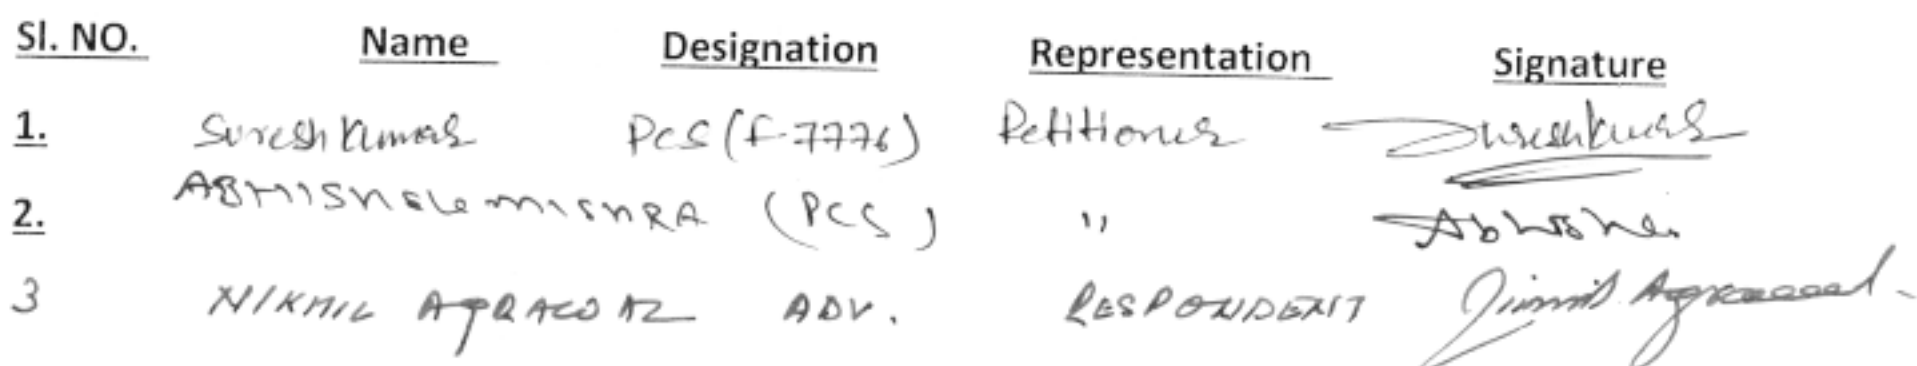 Sl. NO. Name Designation Representation Signature
1. Suresh Kumar PCS (F-7776) Petitioner Sureshkumar
2. ABHISHEK MISHRA (PCS) " Abhishek
3 NIKHIL AGRAWAL ADV. RESPONDENT Agrawal